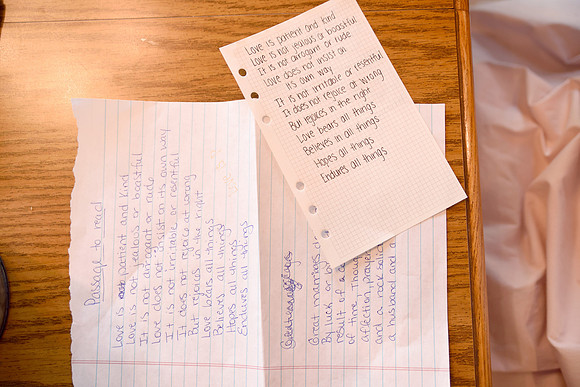 Love is patient and kind
Love is not jealous or boastful
It is not arrogant or rude
Love does not insist on
Its own way
It is not irritable or resentful
It does not rejoice at wrong
But rejoices in the right
Love bears all things
Believes in all things
Hopes all things
Endures all things
Passage to read
Love is patient and kind
Love is not jealous or boastful
It is not arrogant or rude
Love does not insist on its own way
It is not irritable or resntful
It does not rejoice at wrong
But rejoices in the right
Love bears all things
Believes all things
Hopes all things
Endures all things
Great marriages d
By luck or by
result of a
of time, Thoug
affection, prayer
and a rock solid
a husband and a